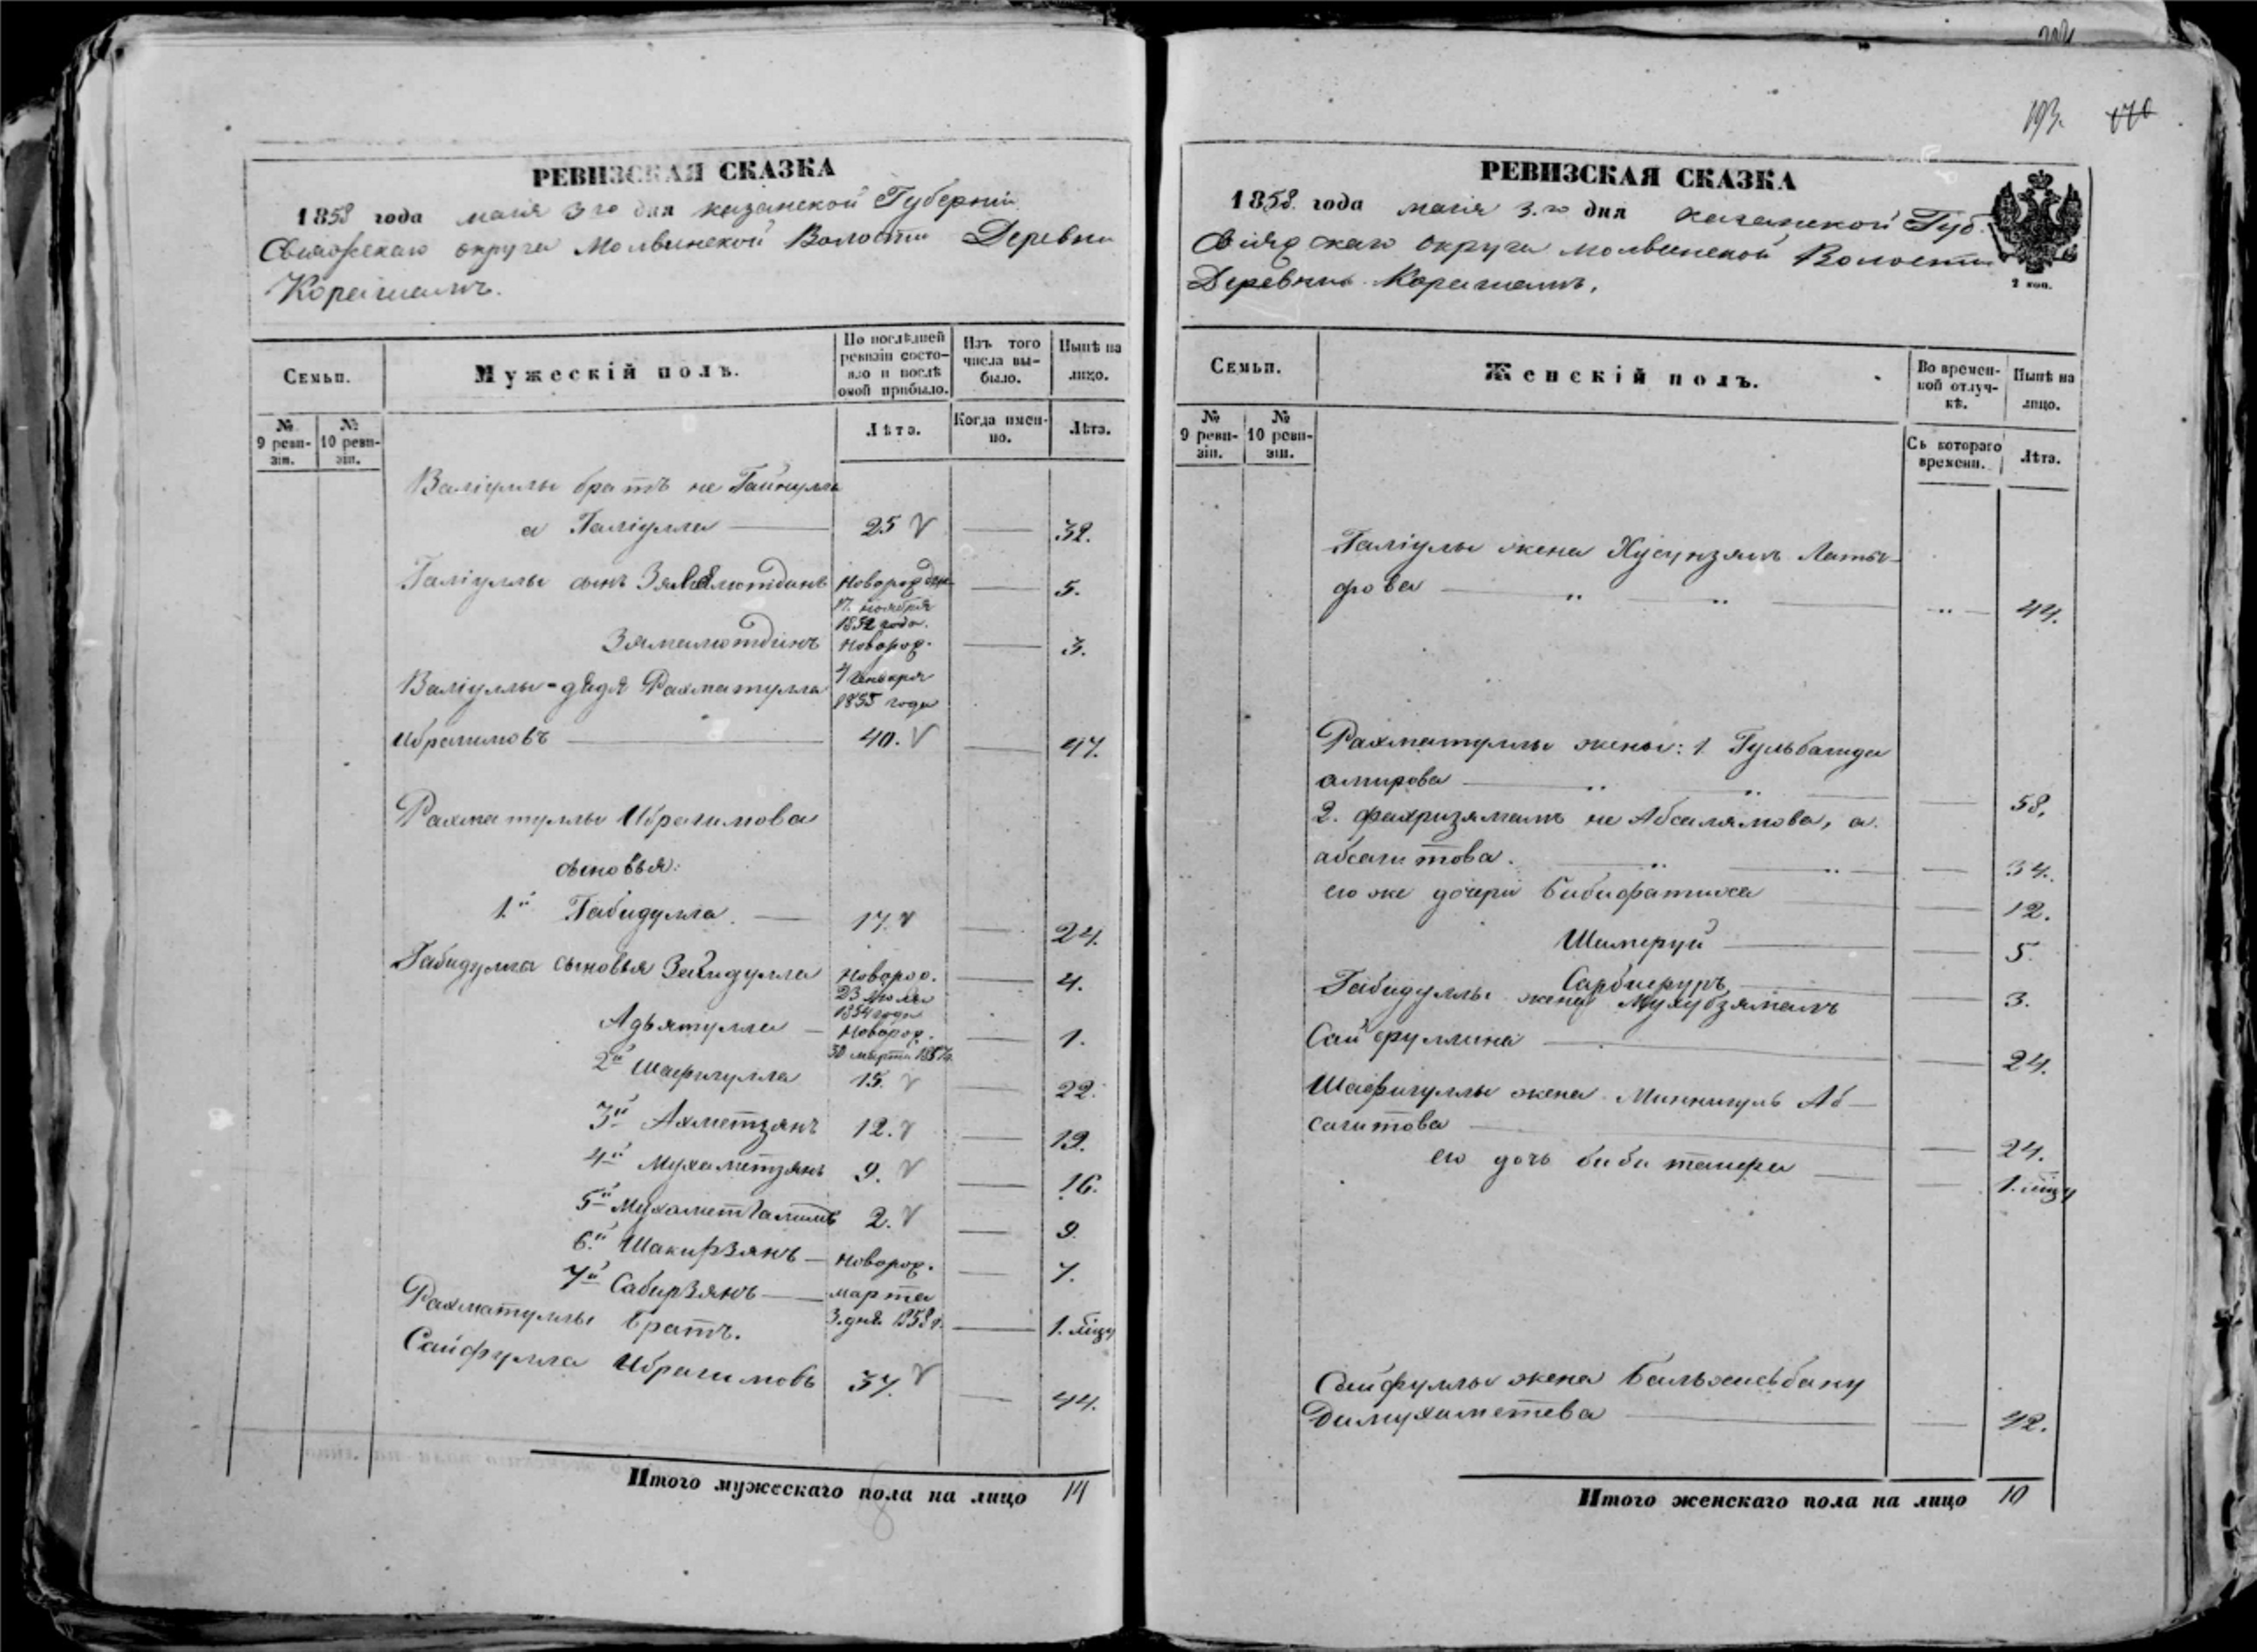 193. 170
РЕВИЗСКАЯ СКАЗКА
1858 года маія 3го дня казанской Губерніи
Свіяжскаго округа Молвинской Волости Деревни
Корашамъ.
Семьи.
Мужескій полъ.
По послѣдней ревизіи состояло и послѣ оной прибыло.
Изъ того числа выбыло.
Нынѣ на лицо.
№ 9 ревизіи.
№ 10 ревизіи.
Лѣта.
Когда именно.
Лѣта.
Валіуллы братъ не Гайнулла
а Галіулла 25 32.
Галіуллы сынъ Новорожден 5.
17. ноября
1852 года.
Зямалютдинъ Новорож. 3.
Валіуллы дядя Рахматулла 4 января
1855 года
Ибрагимовъ 40. 47.
Рахматуллы Ибрагимова
сыновья:
1й Габидулла 17. 24.
Габидулла сыновья Новорож. 4.
23 Іюля
1854 года
Адъятулла Новорож. 1.
30 марта 1857 г.
2й Шафигулла 15. 22.
3й Ахметзянъ 12. 19.
4й Мухаметзянъ 9. 16.
5й Мухаметгалимъ 2. 9
6й Шакирзянъ Новорож. 7.
7й Сабирзянъ марта
3. дня 1858 г. 1. мѣзу
Рахматуллы братъ.
Сайфулла Ибрагимовъ 37. 44.
Итого мужескаго пола на лицо 14
РЕВИЗСКАЯ СКАЗКА
1858 года маія 3.го дня казанской Губ.
Свіяжскаго округа молвинской Волости
Деревни Корашамъ.
2 коп.
Семьи.
Женскій полъ.
Во временной отлучкѣ.
Нынѣ на лицо.
№ 9 ревизіи.
№ 10 ревизіи.
Съ котораго времени.
Лѣта.
Галіулы жена Хусунзямъ Латы-
фова 44.
Рахматуллы жены: 1. Гульбагида
амирова 58.
2. фахризямалъ не Абсалямова, а
абсагитова. 34.
его же дочери Бибифатиха 12.
Шамеруй 5.
Сарбиеруръ 3.
Габидуллы жена Мухубзямалъ
Сайфуллина 24.
Шафигуллы жена Миннигуль Аб-
сагитова 24.
его дочь биби таифа 1. мѣзу
Сайфуллы жена Бальхисьбану
Димухаметева 42.
Итого женскаго пола на лицо 10